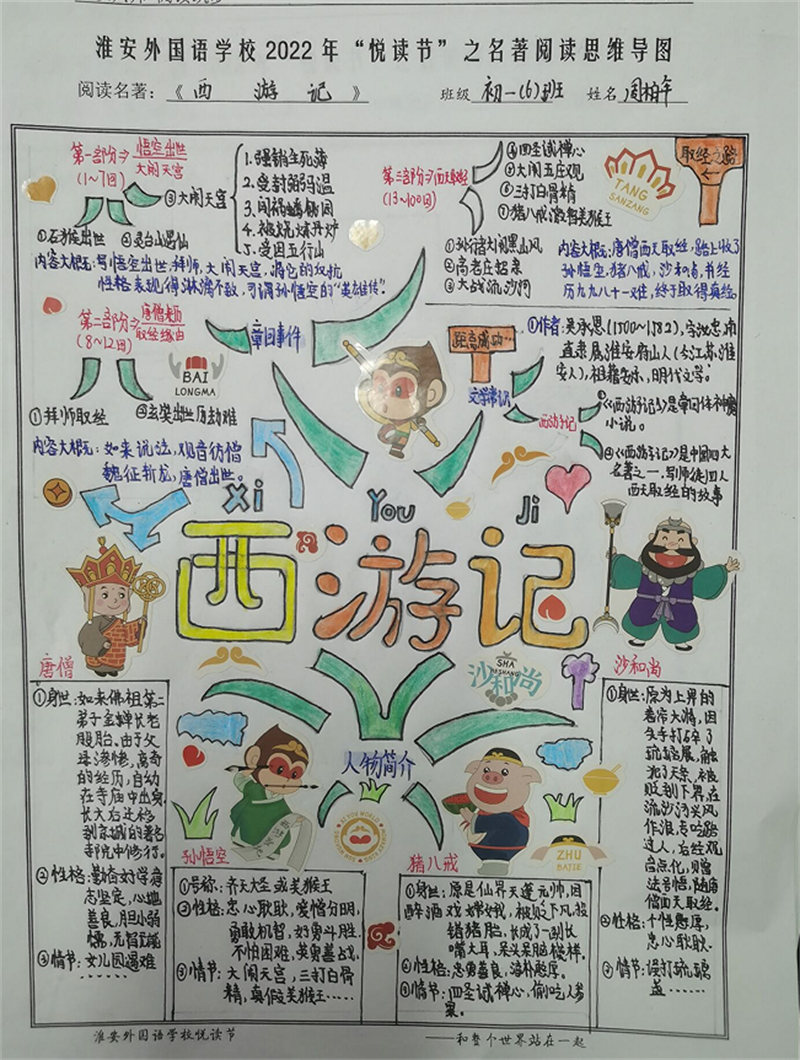 淮安外国语学校2022年“悦读节”之名著阅读思维导图
阅读名著：《 西 游 记 》 班级 初一(6)班 姓名 周柏年
第一部分⇒悟空出世
大闹天宫
(1~7回)
③大闹天宫
1.强销生死薄
2.受封弼马温
4.被煨炼丹炉
5.受困五行山
①石猴出世 ②灵台山
内容大概：写悟空出世,拜师,大闹天宫,将它的反抗
性格表现得淋漓不致,可谓孙悟空的“英雄传”.
第三部分⇒西天取经
(13~100回)
④四圣试禅心
⑤大闹五庄观
⑥三打白骨精
⑦猪八戒激将美猴王
①孙行者大闹黑山风
②高老庄
③大战流沙河
TANG
SANZANG
取经之路
内容大概：唐僧西天取经,路上收了
孙悟空,猪八戒,沙和尚,并经
历九九八十一难,终于取得真经。
第二部分⇒唐僧
取经缘由
(8~12回)
①拜师取经 ②玄奘出世历劫难
BAI
LONGMA
内容大概：如来说法,观音彷僧
魏征斩龙,唐僧出世。
章回事件
距离成功…
文学常识
①作者:吴承恩(1500~1582),字汝忠,南
直隶属淮安府山人(今江苏淮
安人),祖籍安味,明代文学。
西游记
②《西游记》是章回体神魔
小说。
④《西游记》是中国四大
名著之一,写师徒四人
西天取经的故事
Xi You Ji
西游记
唐僧
沙和尚
SHA
HESHANG
沙和尚
人物简介
孙悟空
猪八戒
ZHU
BAJIE
①身世:如来佛祖第二
弟子金蝉长老
投胎。由于父
母惨惨,离奇
的经历,自幼
在寺庙中出家,
长大后迁移
到京城的著名
寺院中修行。
②性格:勤奋好学,意
志坚定,心地
善良,胆小弱
懦,
③情节:女儿国遇难
……
①号称:齐天大圣或美猴王
②性格:忠心耿耿,爱憎分明,
勇敢机智,好勇斗胜,
不怕困难,英勇善战.
③情节:大闹天宫,三打白骨
精,真假美猴王……
①身世:原是仙界天蓬元帅,因
醉酒戏嫦娥,被贬下凡,投
错猪胎,长成了一副长
嘴大耳,呆头呆脑模样。
②性格:忠勇善良,淳朴憨厚.
③情节:四圣试禅心,偷吃人参
果.
①身世:原为上界的
卷帘大将,因
失手打碎了
琉璃盏,触
犯了天条,被
贬到下界,在
流沙河兴风
作浪,专吃路
过人,后经观
音点化,
法号悟,随唐
僧西天取经.
②性格:个性憨厚,
忠心耿耿.
③情节:误打琉璃
盏……
淮安外国语学校悦读节 ——和整个世界站在一起